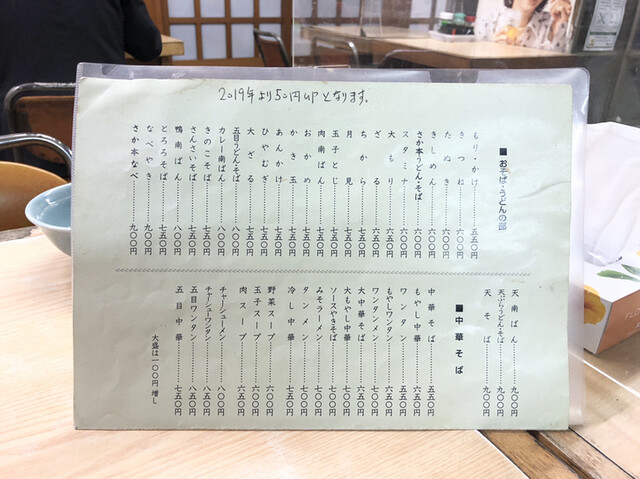 2019年より50円upとなります。
■おそば・うどんの部
もり・かけ………五五〇円
きつね………六〇〇円
たぬき………六〇〇円
きしめん………六〇〇円
さか本うどん・そば………六〇〇円
スタミナ………六〇〇円
大もり………六五〇円
ざる………六五〇円
ちから………七五〇円
月見………六五〇円
玉子とじ………七五〇円
肉南ばん………七五〇円
おかめ………七五〇円
かき玉………七五〇円
あんかけ………七五〇円
ひやむぎ………七五〇円
大ざる………七五〇円
五目うどん・そば………八〇〇円
カレー南ばん………八〇〇円
きのこそば………七五〇円
さんさいそば………七五〇円
鴨南ばん………八〇〇円
とろろそば………七五〇円
なべやき………九〇〇円
さか本なべ………九〇〇円
天南ばん………九〇〇円
天ぷらうどん・そば………九〇〇円
天そば………九〇〇円
■中華そば
中華そば………五五〇円
もやし中華………六五〇円
ワンタン………五五〇円
もやしワンタン………六五〇円
ワンタンメン………六五〇円
大中華そば………六五〇円
大もやし中華………七五〇円
ソースやきそば………七五〇円
みそラーメン………七〇〇円
タンメン………七〇〇円
冷し中華………七五〇円
野菜スープ………六〇〇円
玉子スープ………六〇〇円
肉スープ………六五〇円
チャーシューメン………八〇〇円
チャーシューワンタン………八五〇円
五目ワンタン………八五〇円
五目中華………七五〇円
大盛は一〇〇円増し